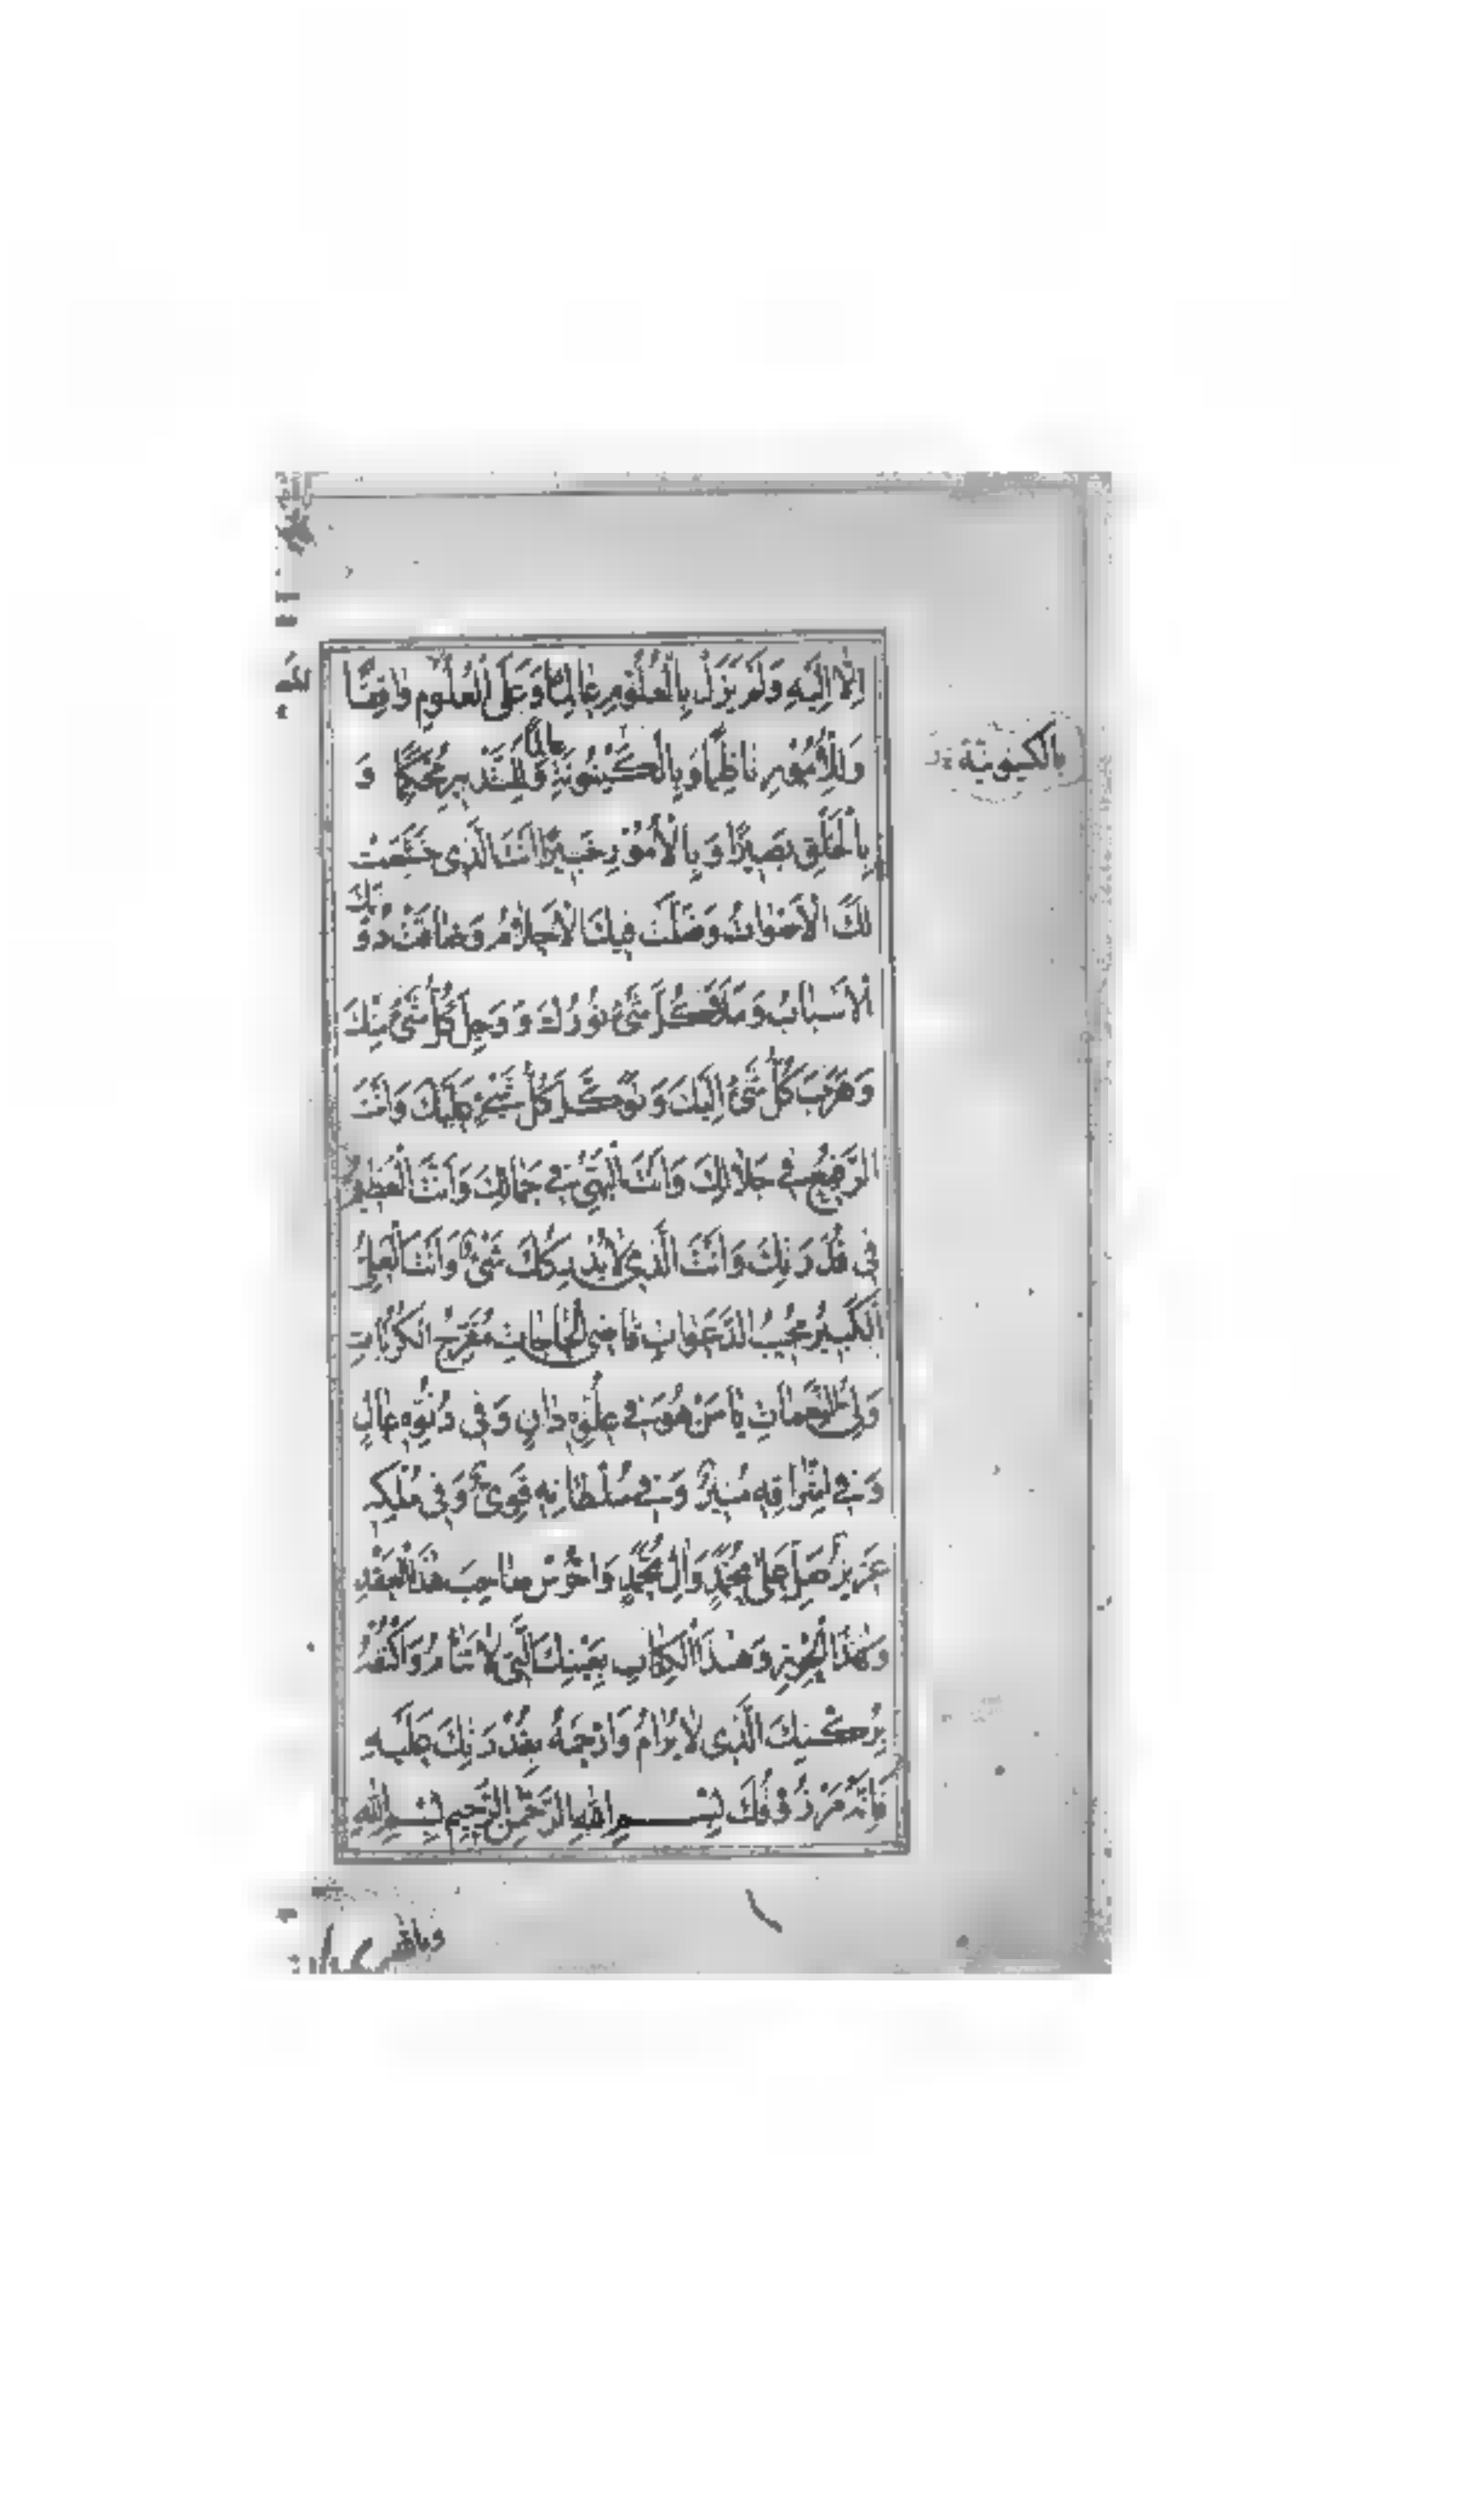 اِلّا اِلَيْهِ وَلَمْ يَزَلْ بِالْعُلُوْمِ عَالِمًا وَعَلَى الْعُلُومِ وَاقِفًا
وَلِلْاُمُوْرِ نَاظِمًا وَبِالْكَيْنُونِيَّةِ عَالِمًا وَلِلتَّدْبِيرِ مُحْكِمًا وَ
بِالْخَلْقِ بَصِيرًا وَبِالْاُمُوْرِ خَبِيرًا اَنْتَ الَّذِى خَشَعَتْ
لَكَ الْاَصْوَاتُ وَضَلَّتْ فِيكَ الْاَحْلَامُ وَضَاقَتْ دُوْنَكَ
الْاَسْبَابُ وَمَلَاَ كُلَّ شَىْءٍ نُوْرُكَ وَ وَجِلَ كُلُّ شَىْءٍ مِنْكَ
وَهَرَبَ كُلُّ شَىْءٍ اِلَيْكَ وَتَوَكَّلَ كُلُّ شَىْءٍ عَلَيْكَ وَاَنْتَ
الرَّفِيعُ فِى جَلَالِكَ وَاَنْتَ الْبَهِىُّ فِى جَمَالِكَ وَاَنْتَ الْعَظِيمُ
فِى قُدْرَتِكَ وَاَنْتَ الَّذِى لَا يُدْرِكُكَ شَىْءٌ وَاَنْتَ الْعَلِىُّ
الْكَبِيرُ مُجِيبُ الدَّعَوَاتِ قَاضِى الْحَاجَاتِ مُفَرِّجُ الْكُرُبَاتِ
وَلِىُّ النَّعِمَاتِ يَا مَنْ هُوَ فِى عُلُوِّهِ دَانٍ وَفِى دُنُوِّهِ عَالٍ
وَفِى اِشْرَاقِهِ مُنِيرٌ وَفِى سُلْطَانِهِ قَوِىٌّ وَفِى مُلْكِهِ
عَزِيزٌ صَلِّ عَلٰى مُحَمَّدٍ وَاٰلِ مُحَمَّدٍ وَاحْرُسْ صَاحِبَ هٰذَا الْعَقْدِ
وَهٰذَا الْحِرْزِ وَهٰذَا الْكِتَابِ بِعَيْنِكَ الَّتِى لَا تَنَامُ وَاكْنُفْهُ
بِرُكْنِكَ الَّذِى لَا يُرَامُ وَارْحَمْهُ بِقُدْرَتِكَ عَلَيْهِ
فَاِنَّهُ مَرْزُوْقُكَ بِسْمِ اللهِ الرَّحْمٰنِ الرَّحِيمِ بِسْمِ اللهِ
بالكينونية
وبالله